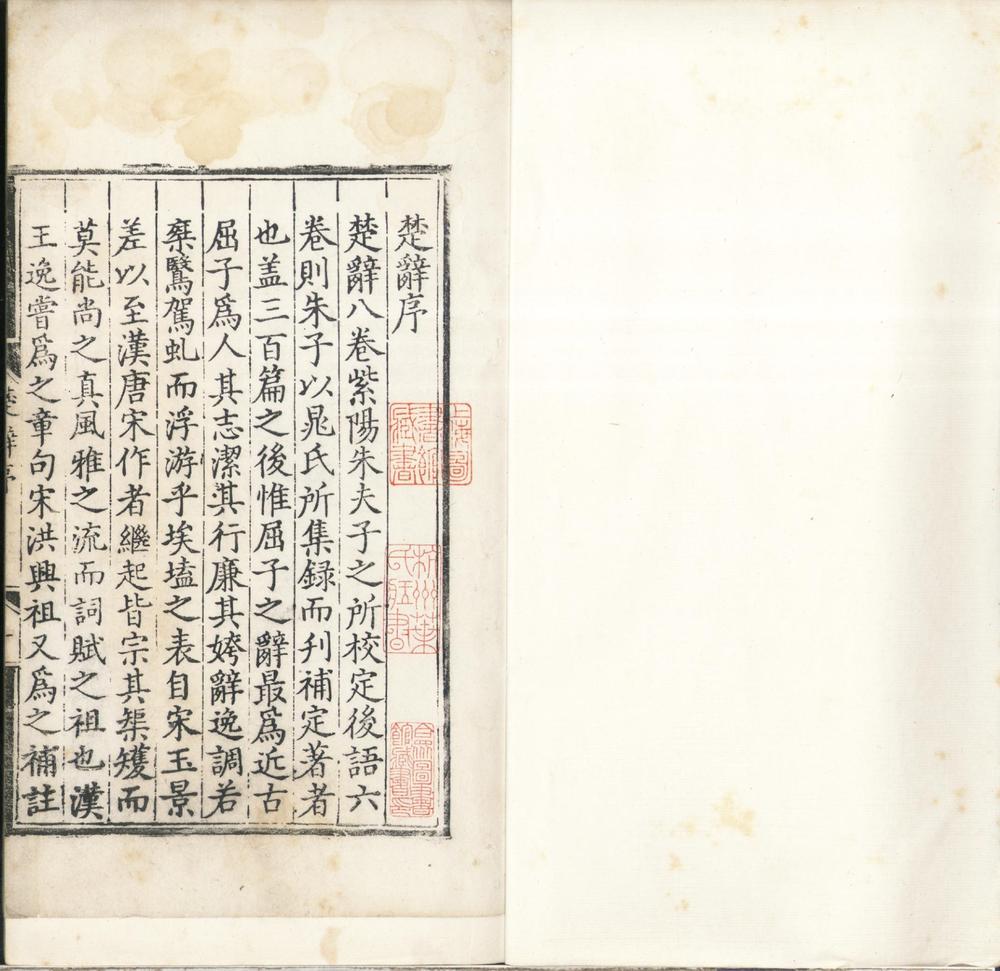 楚辭序
楚辭八卷紫陽朱夫子之所校定後語六
卷則朱子以晁氏所集録而刋補定著者
也盖三百篇之後惟屈子之辭最爲近古
屈子爲人其志潔其行廉其姱辭逸調若
椉鷖駕虬而浮游乎埃壒之表自宋玉景
差以至漢唐宋作者繼起皆宗其榘矱而
莫能尚之真風雅之流而詞賦之祖也漢
王逸嘗爲之章句宋洪興祖又爲之補註
楚辭序
杭州葉氏藏書
合眾圖書館藏書印